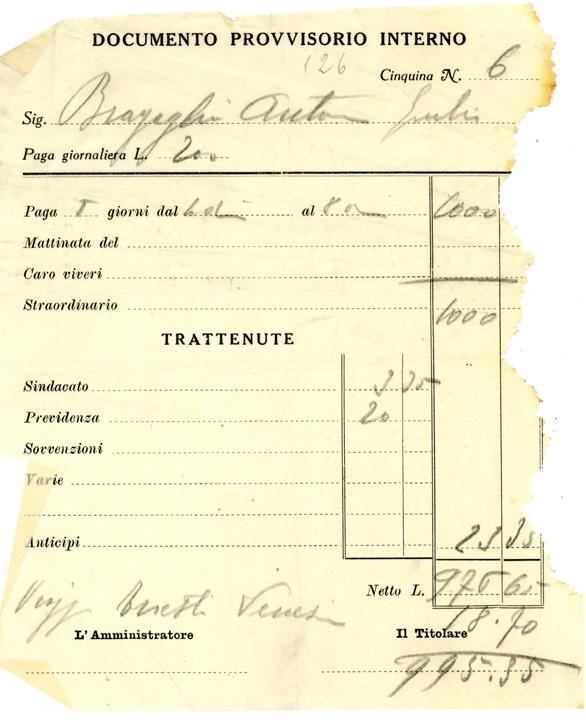 DOCUMENTO PROVVISORIO INTERNO
126
Cinquina N. 6
Sig. Bragaglia Anton Giulio
Paga giornaliera L. 200
Paga 5 giorni dal 4 al 8 1000
Mattinata del
Caro viveri
Straordinario 1000
TRATTENUTE
Sindacato 3 35
Previdenza 20
Sovvenzioni
Varie
Anticipi 23 35
Netto L. 976 65
18.70
L'Amministratore Il Titolare
995.35